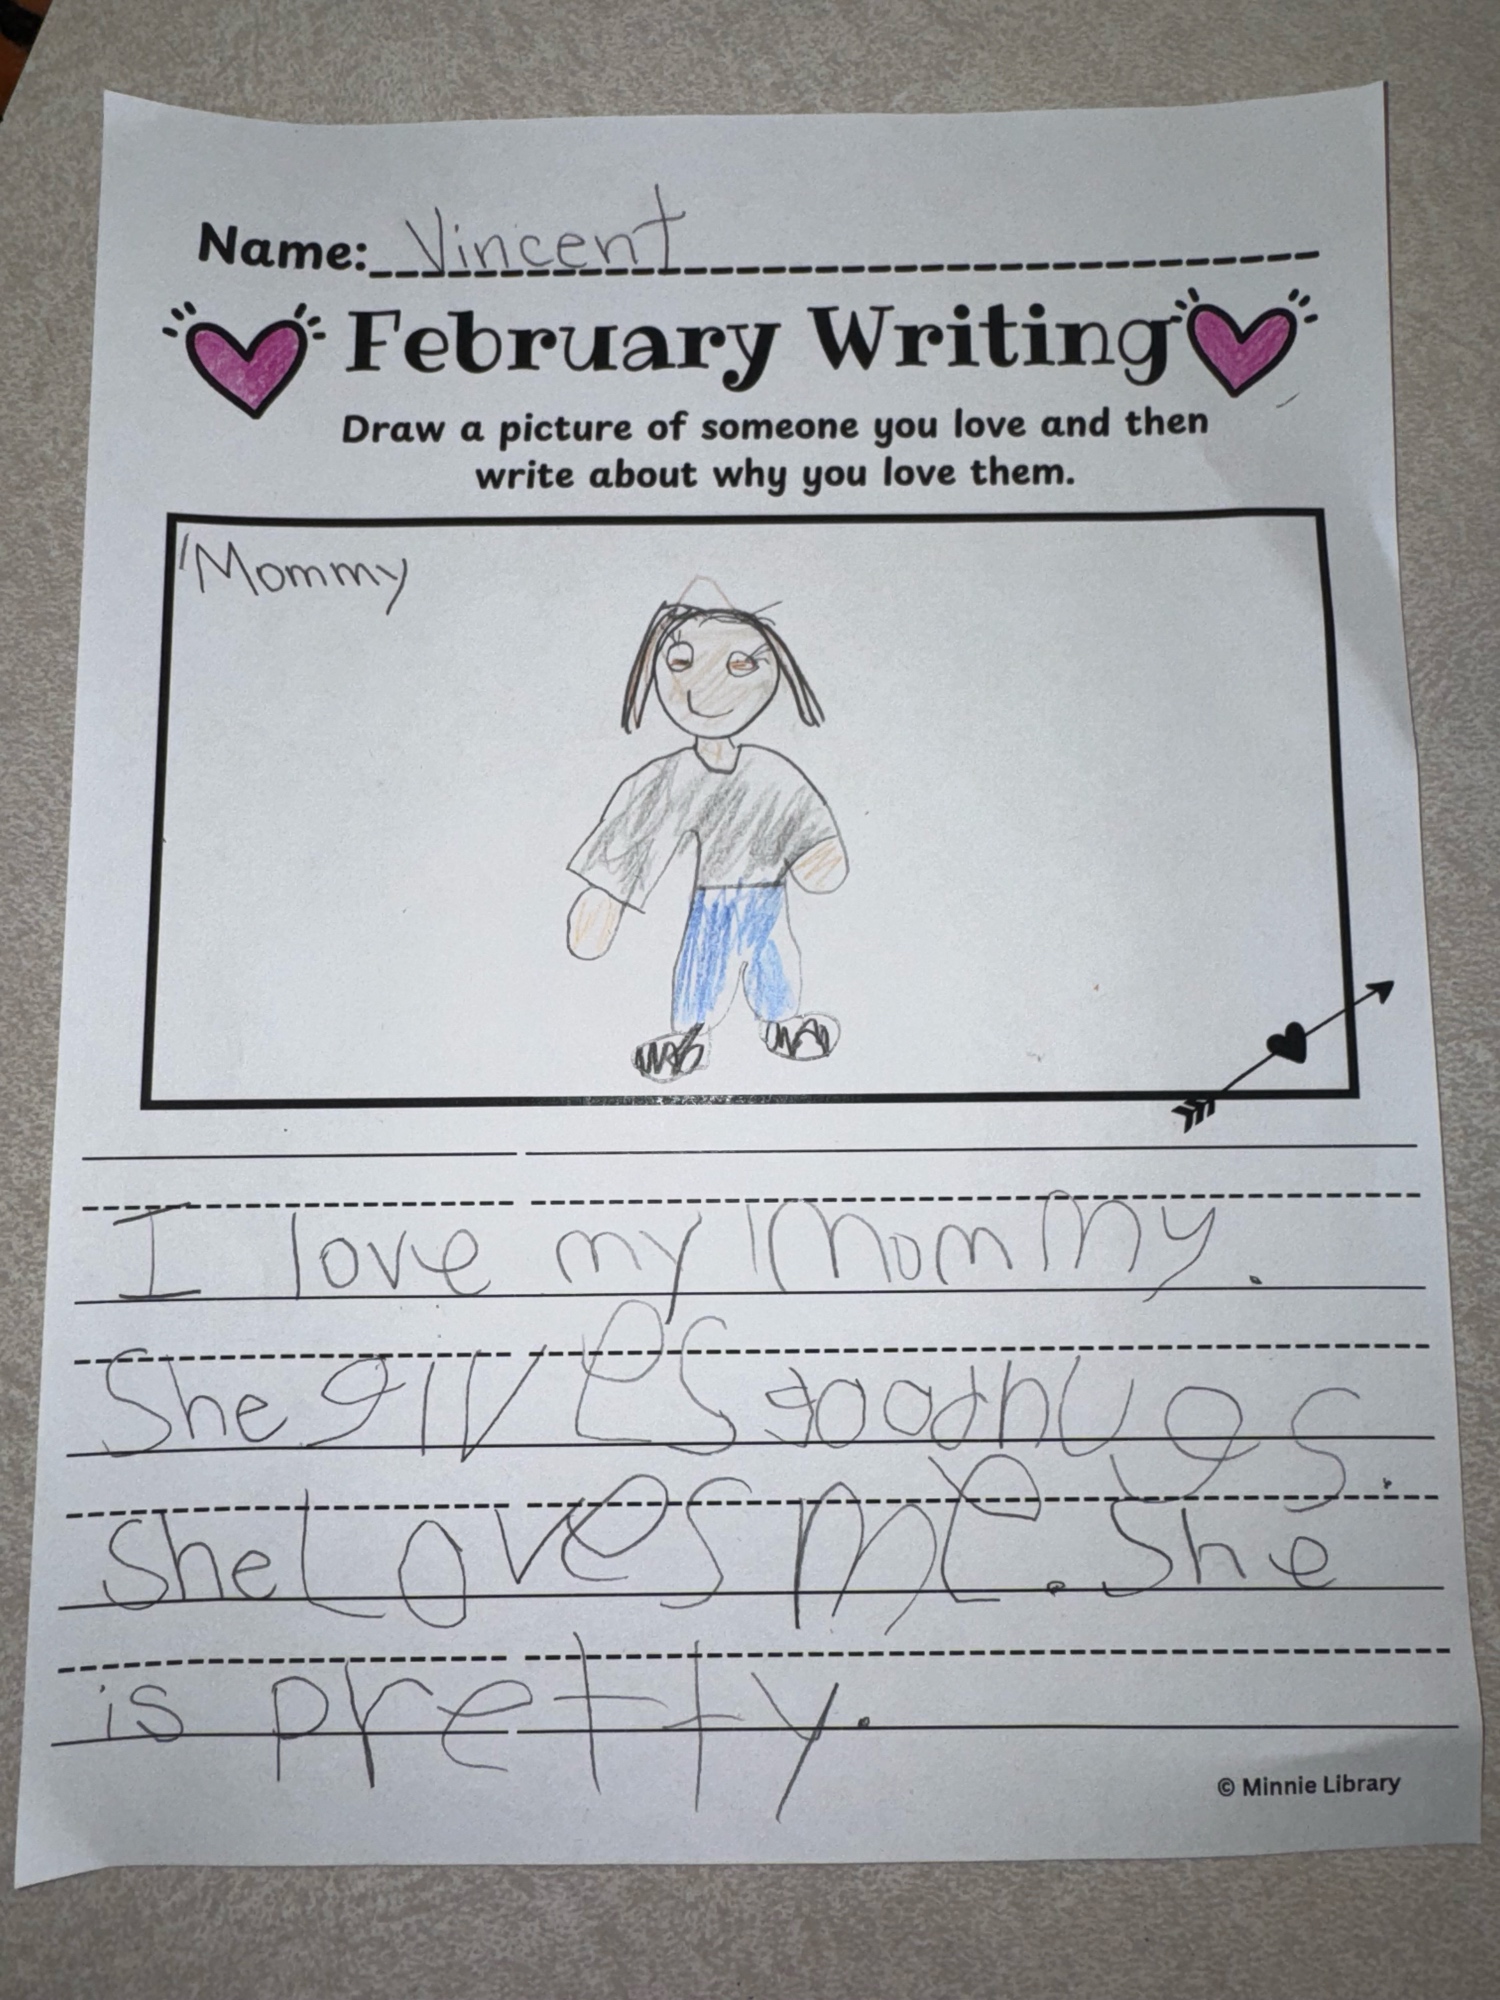 Name: Vincent
February Writing
Draw a picture of someone you love and then
write about why you love them.
Mommy
I love my Mommy.
She gives good hugs.
She Loves me. She
is pretty.
© Minnie Library